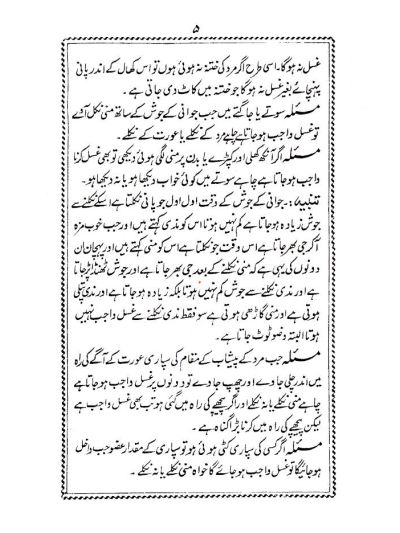 ۵
غسل نہ ہوگا۔ اسی طرح اگر مرد کی ختنہ نہ ہوئی ہوں تو اس کھال کے اندر پانی
پہنچائے بغیر غسل نہ ہوگا جو ختنہ میں کاٹ دی جاتی ہے۔
مسئلہ سوتے یا جاگتے میں جب جوانی کے جوش کے ساتھ منی نکل آئے
تو غسل واجب ہو جاتا ہے چاہے مرد کے نکلے یا عورت کے نکلے۔
مسئلہ اگر آنکھ کھلی اور کپڑے یا بدن پر منی لگی ہوئی دیکھی تو بھی غسل کرنا
واجب ہو جاتا ہے چاہے سوتے میں کوئی خواب دیکھا ہو یا نہ دیکھا ہو۔
تنبیہ :۔ جوانی کے جوش کے وقت اول اول جو پانی نکلتا ہے اسکے نکلنے سے
جوش زیادہ ہو جاتا ہے کم نہیں ہوتا اس کو مذی کہتے ہیں اور جب خوب مزہ
آکر جی بھر جاتا ہے اس وقت جو نکلتا ہے اس کو منی کہتے ہیں اور پہچان ان
دونوں کی یہی ہے کہ منی نکلنے کے بعد جی بھر جاتا ہے اور جوش ٹھنڈا پڑ جاتا
ہے اور مذی نکلنے سے جوش کم نہیں ہوتا بلکہ زیادہ ہو جاتا ہے اور مذی پتلی
ہوتی ہے اور منی گاڑھی ہوتی ہے سو فقط مذی نکلنے سے غسل واجب نہیں
ہوتا البتہ وضو ٹوٹ جاتا ہے۔
مسئلہ جب مرد کے پیشاب کے مقام کی سپاری عورت کے آگے کی راہ
میں اندر چلی جاوے اور چھپ جاوے تو دونوں پر غسل واجب ہو جاتا ہے
چاہے منی نکلے یا نہ نکلے اور اگر پیچھے کی راہ میں گئی ہو تب بھی غسل واجب ہے
لیکن پیچھے کی راہ میں کرنا بڑا گناہ ہے۔
مسئلہ اگر کسی کی سپاری کٹی ہوئی ہو تو سپاری کے مقدار عضو جب داخل
ہو جائیگا تو غسل واجب ہو جائے گا خواہ منی نکلے یا نہ نکلے۔